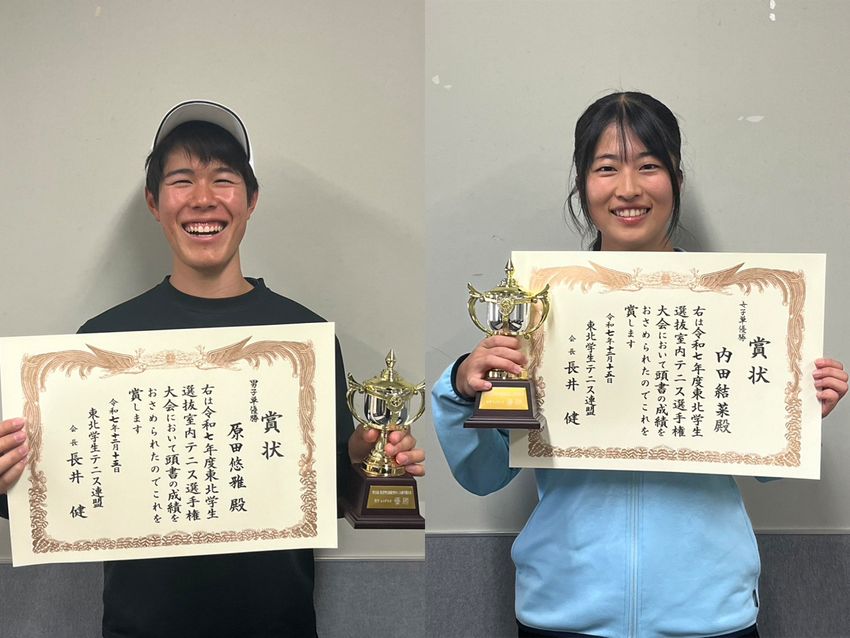 賞状
男子単優勝
原田悠雅殿
右は令和七年度東北学生
選抜室内テニス選手権
大会において頭書の成績を
おさめられたのでこれを
賞します
令和七年十二月十五日
東北学生テニス連盟
会長 長井 健
優勝
賞状
女子単優勝
内田結菜殿
右は令和七年度東北学生
選抜室内テニス選手権
大会において頭書の成績を
おさめられたのでこれを
賞します
令和七年十二月十五日
東北学生テニス連盟
会長 長井 健